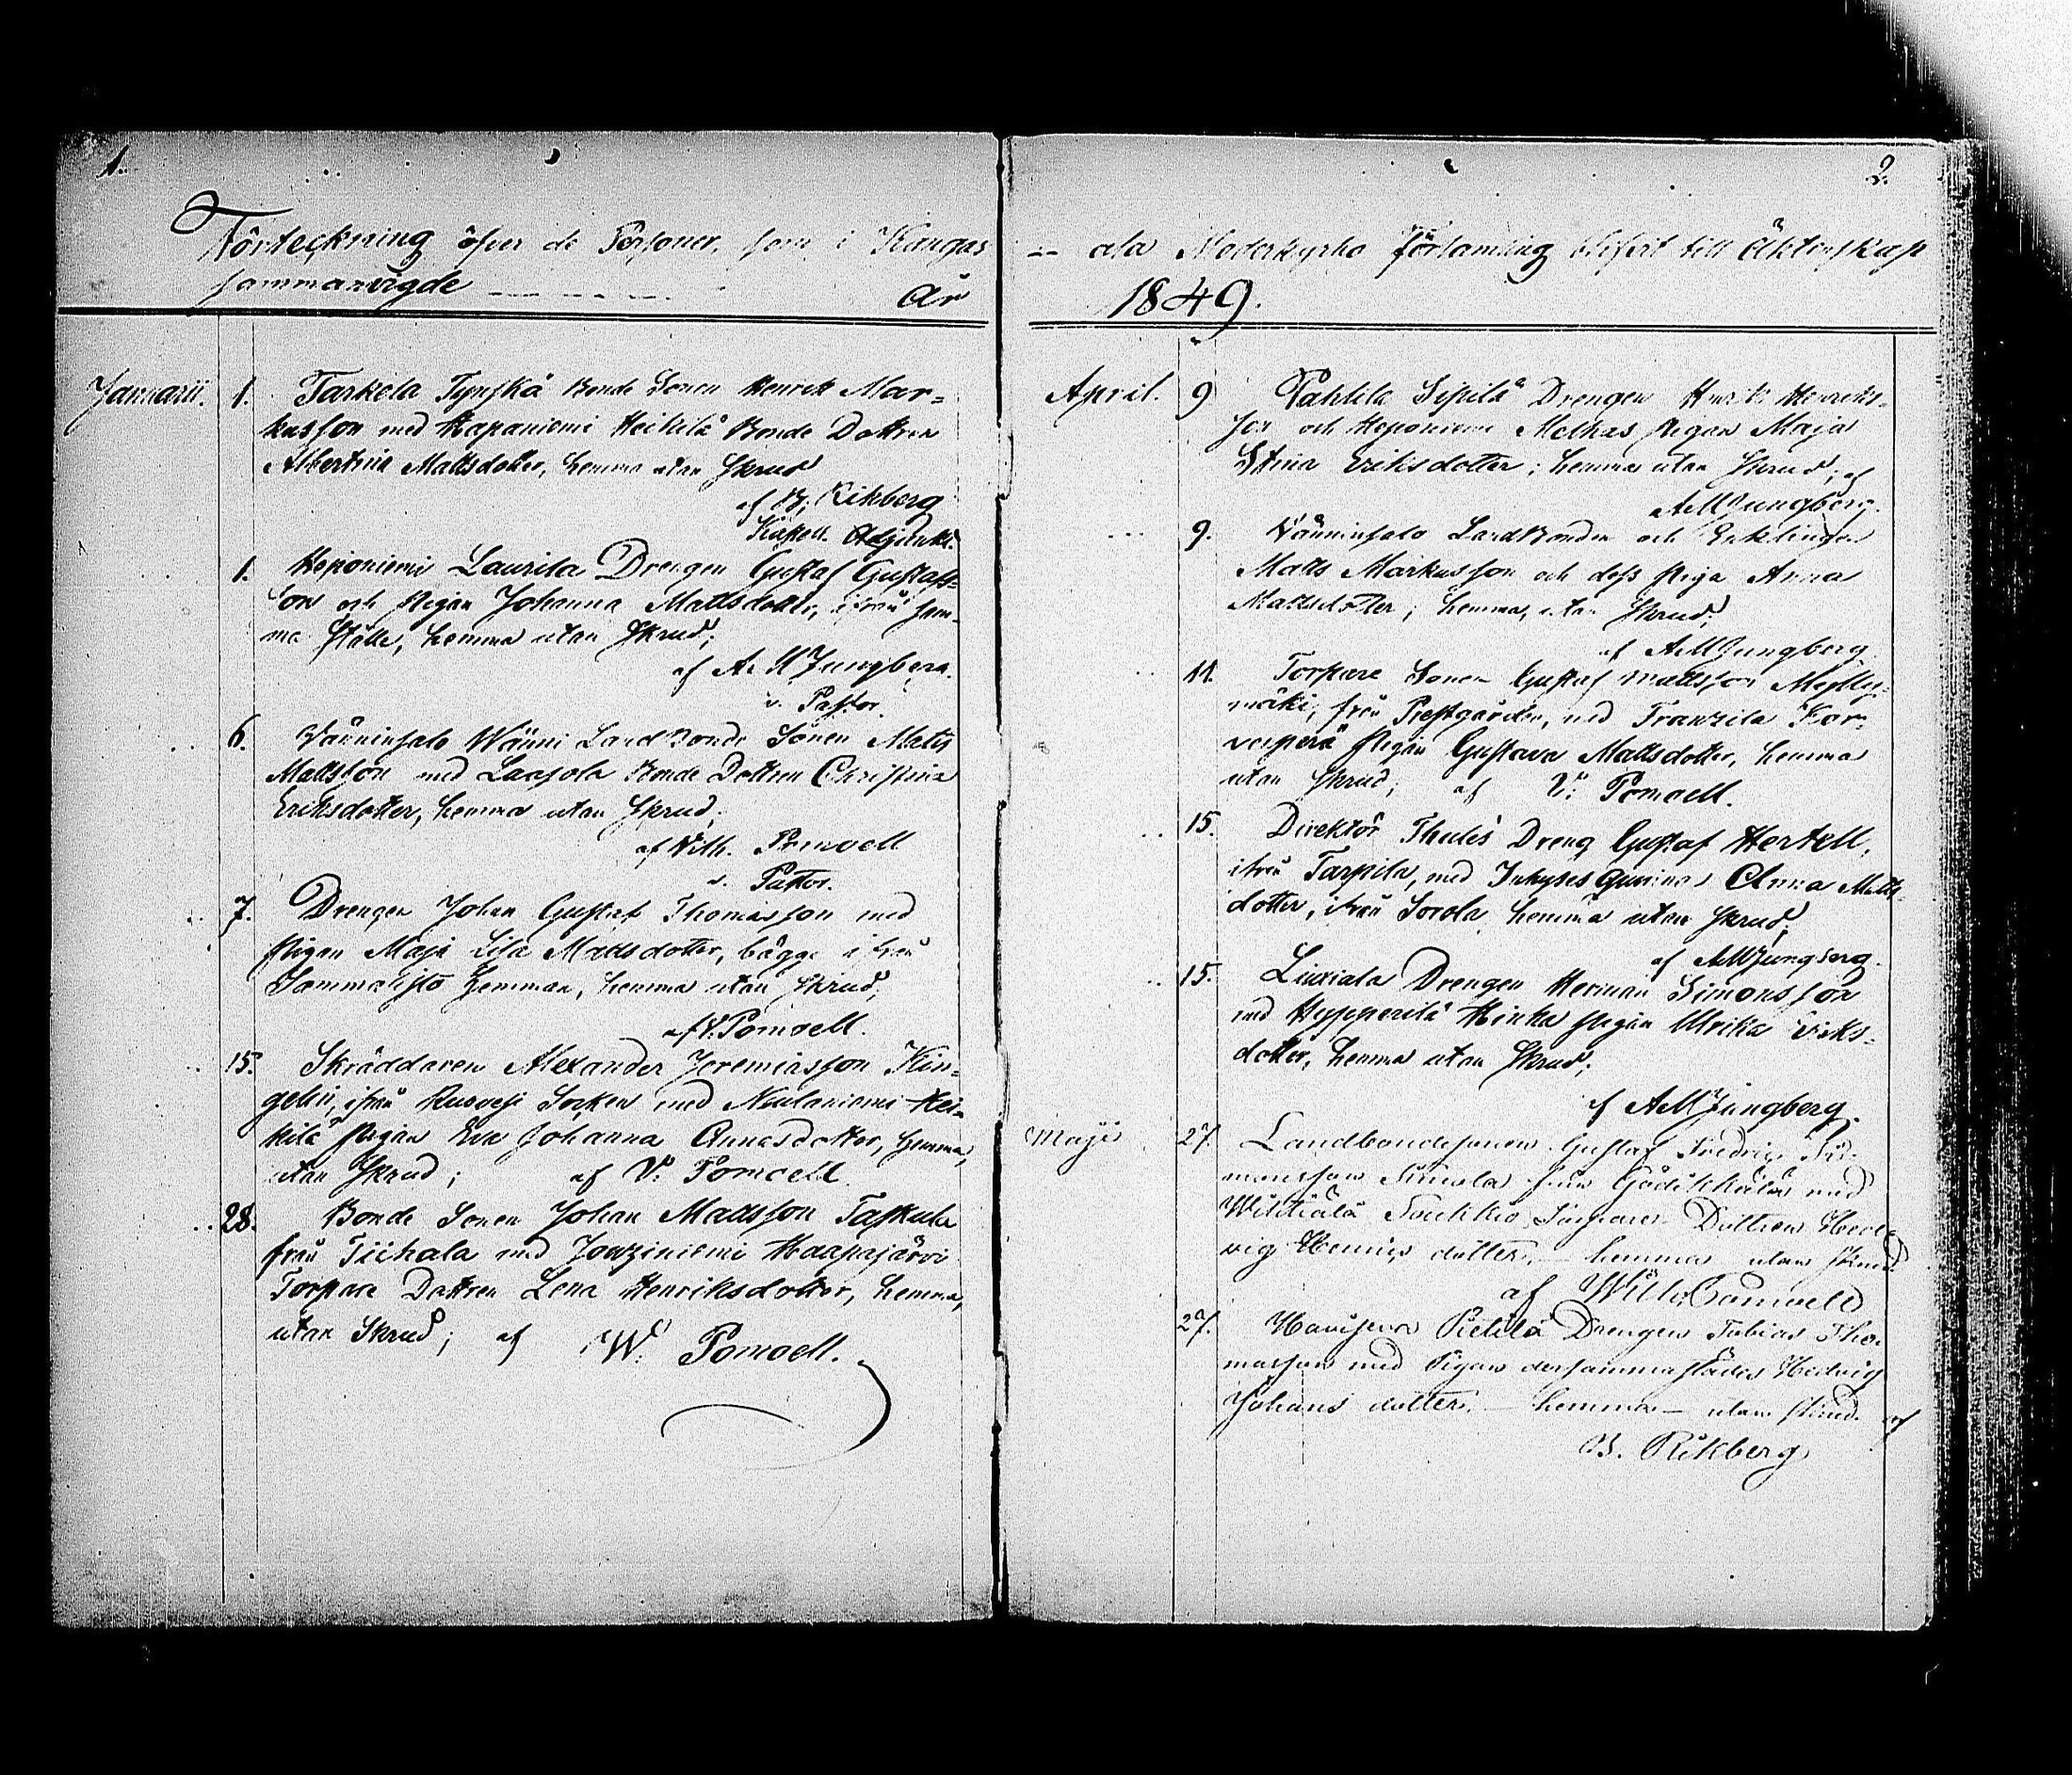 1.
Förteckning öfver de Personer, som i Kangas
sammanvigde år
Januarii. 1. Tarkela Tynskä Bonde Sonen Henrik Mar-
kusson med Kapaniemi Heikilä Bonde Dottren
Albertina Mattsdotter, hemma utan Skrud
af B. Rikberg
Kapell. Adjunkt.
1. Reponiemi Laurila Drengen Gustaf Gustafs-
son och Pigan Johanna Mattsdotter, ifrån sam-
ma ställe, hemma utan Skrud;
af A. M Jungberg.
v. Pastor.
6. Vänninsalo Wänni Landbonde Sonen Matts
Mattsson med Laasola Bonde Dottren Christina
Eriksdotter, hemma utan Skrud;
af Wilh. Pomoell
v. Pastor.
7. Drengen Johan Gustaf Thomasson med
Pigan Maja Lisa Mattsdotter, bägge ifrån
Sammalisto Hemman, hemma utan Skrud;
af V. Pomoell.
15. Skräddaren Alexander Jeremiasson Kin-
gelin, ifrån Rusvesi Socken med Neulaniemi Hei-
kilä Pigan Eva Johanna Annasdotter, hemma,
utan Skrud; af V. Pomoell.
28. Bonde Sonen Johan Mattsson Taskula
från Tiihala med Jouziniemi Haapajärvi
Torpare Dottren Lena Henriksdotter, hemma,
utan Skrud; af W. Pomoell.
2.
ala Moderkyrko Församling blifvit till Äktenskap
1849.
April. 9 Pahlila Sipilä Drengen Henrik Henriks-
son och Reponiemi Melkas Pigan Maja
Stina Eriksdotter; hemma utan Skrud; af
A M Jungberg.
9. Vänninsalo Landbonden och Enklingen
Matts Markusson och dess Piga Anna
Mattsdotter; hemma, utan Skrud;
af A M Jungberg.
11. Torpare Sonen Gustaf Mattsson Mylly-
mäki, från Prestgården, med Franzila Kor-
venperä Pigan Gustava Mattsdotter, hemma
utan Skrud; af V. Pomoell.
15. Direktör Thules Dreng Gustaf Hertell,
ifrån Tarpila, med Inhyses Qvinnan Anna Matts-
dotter, ifrån Sorola, hemma utan Skrud;
af A M Jungberg.
15. Liuxiala Drengen Herman Simonsson
med Hyypperilä Hinka Pigan Ulrika Eriks-
dotter, hemma utan Skrud;
af A M Jungberg.
Maji 27. Landbondesonen Gustaf Fredric Si-
monsson Simola från med
Wihtiälä Soukkio Torpare Dottren Hed-
vig Henrics dotter, hemma utan skrud
af Wilh. Pomoell
27. Pietilä Drengen Tobias Tho-
masson med Pigan dersammastädes Hedvig
Johans dotter, hemma utan skrud af
B. Rikberg